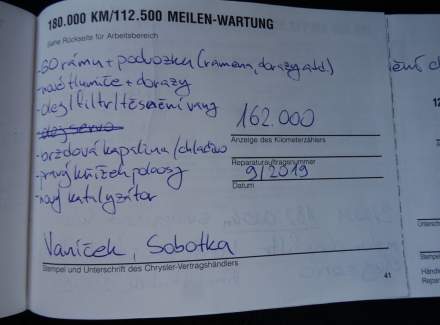 180.000 KM/112.500 MEILEN-WARTUNG
Siehe Rückseite für Arbeitsbereich
-GO rámu + podvozku (ramena, dorazy atd.)
-nové tlumiče + dorazy
-olej/filtr/těsnění vany
-olej servo
-brzdová kapalina/chladivo
-pravý knížek poloosy
-nový katalyzátor
162.000
Anzeige des Kilometerzählers
Reparaturauftragsnummer
9/2019
Datum
Vaníček, Sobotka
Stempel und Unterschrift des Chrysler-Vertragshändlers
41
12
Stempe
Händl
Repar